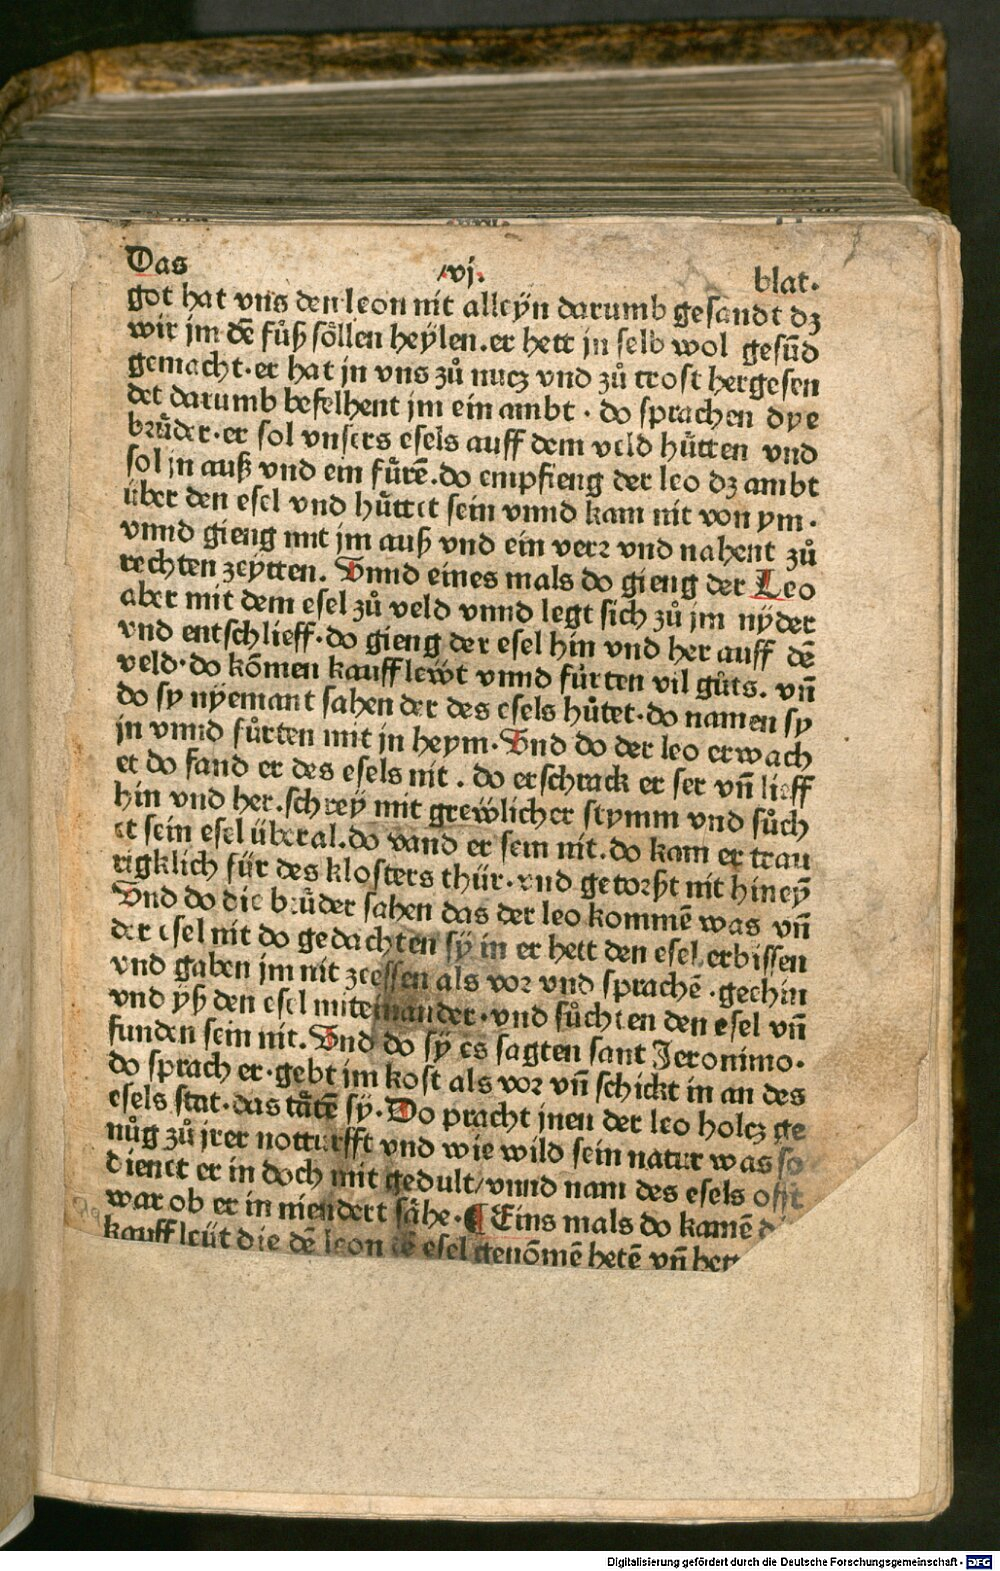 Das .vj. blat.
got hat vns den leon nit alleyn darumb gesandt dz
wir jm dē fůß söllen heylen.er hett jn selb wol gesūd
gemacht.er hat jn vns zů nucz vnd zů trost hergesen
det darumb befelhent jm ein ambt . do sprachen dye
brůder.er sol vnsers esels auff dem veld hůtten vnd
sol jn auß vnd ein fůrē.do empfieng der leo dz ambt
über den esel vnd hůttet sein vnnd kam nit von ym.
vnnd gieng mit jm auß vnd ein verꝛ vnd nahent zů
rechten zeytten. Vnnd eines mals do gieng der Leo
aber mit dem esel zů veld vnnd legt sich zů jm nyder
vnd entschlieff.do gieng der esel hin vnd her auff dē
veld.do kōmen kauff lewt vnnd fůrten vil gůts. vn̄
do sy nyemant sahen der des esels hůtet.do namen sy
jn vnnd fůrten mit jn heym.Vnd do der leo erwach
et do fand er des esels nit . do erschrack er ser vn̄ lieff
hin vnd her.schrey mit grewlicher stymm vnd sůch
et sein esel überal.do vand er sein nit.do kam er trau
rigklich für des klosters thür.vnd getorßt nit hineÿ
Vnd do die brůder sahen das der leo kommē was vn̄
der esel nit do gedachten sÿ in er hett den esel erbissen
vnd gaben jm nit zeessen als vor vnd sprachē .gee hin
vnd ÿß den esel miteinander.vnd sůchten den esel vn̄
funden sein nit.Vnd do sÿ es sagten sant Jeronimo.
do sprach er.gebt jm kost als vor vn̄ schickt in an des
esels stat.das tåtē sÿ.Do pracht jnen der leo holcz ge
nůg zů jrer notturfft vnd wie wild sein natur was so
dienet er in doch mit gedult/vnnd nam des esels offt
war ob er in niendert såhe.¶ Eins mals do kamē
kauff leüt die dē leon esel genōmē hetē vn̄ hett